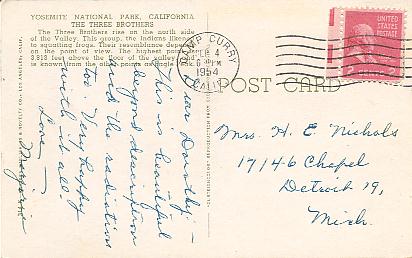 YOSEMITE NATIONAL PARK, CALIFORNIA
THE THREE BROTHERS
The Three Brothers rise on the north side
of the Valley. This group, the Indians likened
to squatting frogs. Their resemblance depends
on the point of view. The highest point is
3,813 feet above the floor of the valley and
is known from the other points as Eagle
CAMP CURRY
4
PM
1954
CALIF.
UNITED STATES
POSTAGE
POST CARD
Dear Dorothy –
This is beautiful
beyond description
and the radiation
too. Very happy
with it all!
Love
Marjorie
Mrs. H. E. Nichols
17146 Chapel
Detroit 19,
Mich.